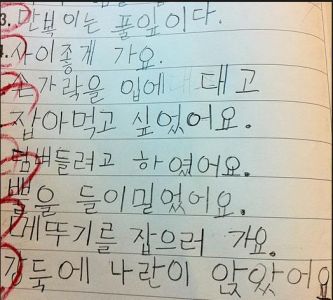 3. 단복이는 풀잎이다.
4. 사이좋게 가요.
손가락을 입에 대 대고
잡아먹고 싶었어요.
덤벼들려고 하였어요.
뱀을 들이밀었어요.
메뚜기를 잡으러 가요.
강둑에 나란이 앉았어요